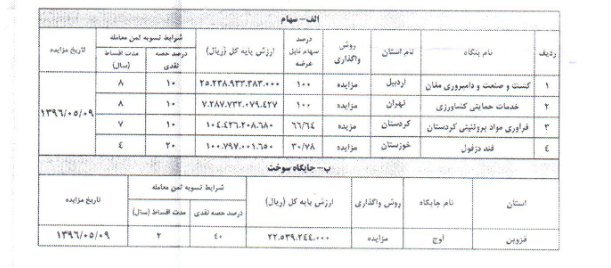 الف- سهام
ردیف نام بنگاه نام استان روش واگذاری درصد سهام قابل عرضه ارزش پایه کل (ریال) شرایط تسویه ثمن معامله درصد حصه نقدی مدت اقساط (سال) تاریخ مزایده
۱ کشت و صنعت و دامپروری مغان اردبیل مزایده ۱۰۰ ۲۵.۲۳۸.۹۳۳.۳۸۳.۰۰۰ ۱۰ ۸
۲ خدمات حمایتی کشاورزی تهران مزایده ۱۰۰ ۷.۲۸۷.۷۳۲.۰۷۹.۴۲۷ ۱۰ ۸ ۱۳۹۶/۰۵/۰۹
۳ فرآوری مواد پروتئینی کردستان کردستان مزیده ۶۶/۶۴ ۱۰۴.۴۳۶.۲۰۸.۶۸۰ ۱۰ ۷
۴ قند دزفول خوزستان مزایده ۳۰/۷۸ ۱۰۰.۷۹۷.۰۰۱.۶۵۰ ۲۰ ۴
ب- جایگاه سوخت
استان نام جایگاه روش واگذاری ارزش پایه کل (ریال) شرایط تسویه ثمن معامله درصد حصه نقدی مدت اقساط (سال) تاریخ مزایده
قزوین آوج مزایده ۲۲.۵۳۹.۲۴۴.۰۰۰ ۴۰ ۲ ۱۳۹۶/۰۵/۰۹